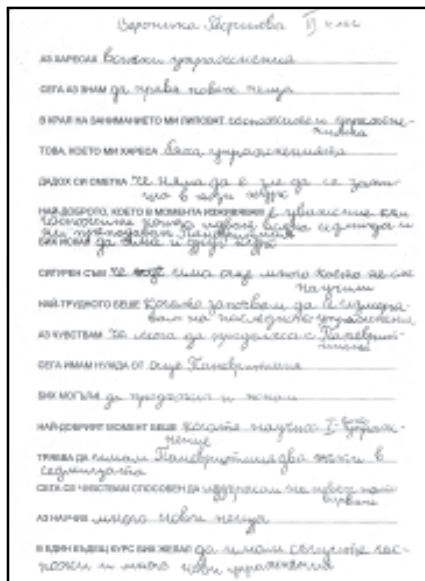 Вероника Георгиева IV клас
АЗ ХАРЕСАХ всички упражнения
СЕГА АЗ ЗНАМ да правя повече неща
В КРАЯ НА ЗАНИМАНИЕТО МИ ЛИПСВАТ
ТОВА, КОЕТО МИ ХАРЕСА бяха упражненията
ДАДОХ СИ СМЕТКА че няма да е зле да се
в този
НАЙ-ДОБРОТО, КОЕТО В МОМЕНТА ИЗЖИВЯВАМ е уважение към
госпожите които идват всяка седмица и
ни преподават Паневритмия
БИХ ИСКАЛ да има и друг
СИГУРЕН СЪМ че има още много което не сме
научили
НАЙ-ТРУДНОТО БЕШЕ когато започвам да се
на последното упражнение
АЗ ЧУВСТВАМ че мога да продължа с Паневрит-
мията
СЕГА ИМАМ НУЖДА ОТ още Паневритмия
БИХ МОГЪЛ/А да продължа и
НАЙ-ДОБРИЯТ МОМЕНТ БЕШЕ когато научих I-вото упраж-
нение
ТРЯБВА да имам Паневритмия два пъти в
седмицата
СЕГА СЕ ЧУВСТВАМ СПОСОБЕН ДА
АЗ НАУЧИХ много нови неща
В ЕДИН БЪДЕЩ КУРС БИХ ЖЕЛАЛ да имам същите гос-
пожи и много нови упражнения